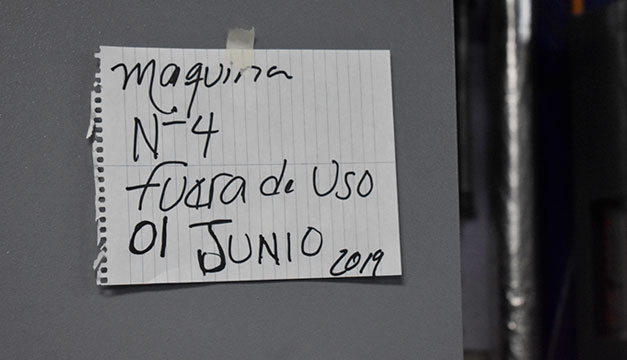 maquina
N-4
fuera de uso
01 JUNIO 2019